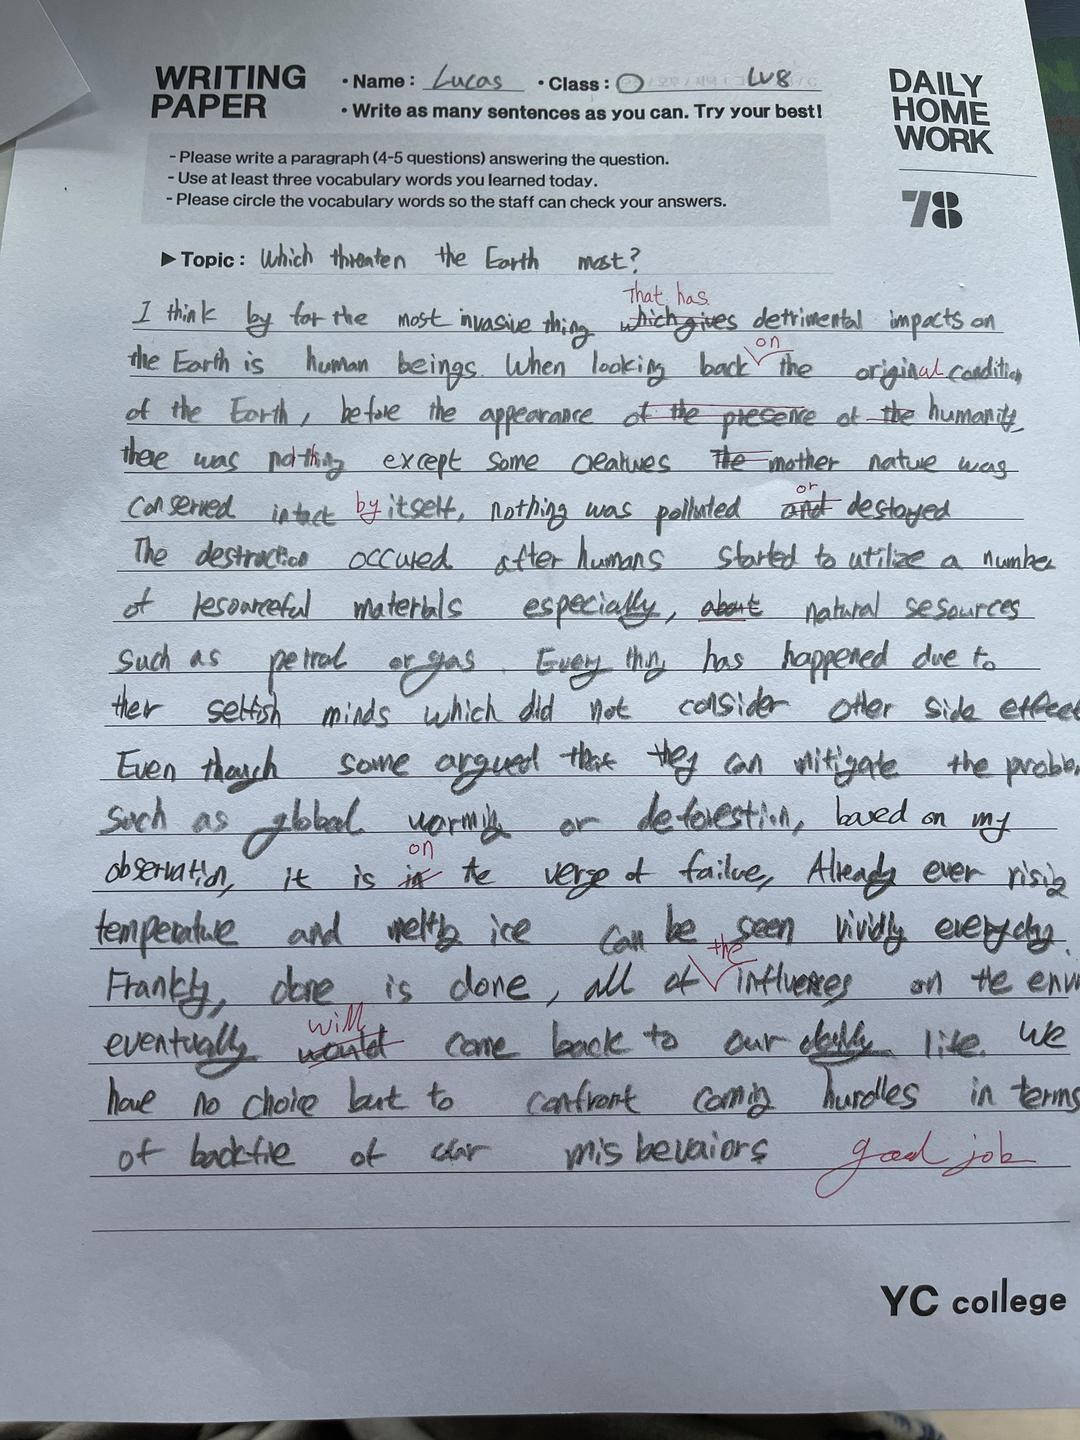 WRITING PAPER
• Name : Lucas • Class : O LV8
• Write as many sentences as you can. Try your best!
DAILY HOME WORK
78
- Please write a paragraph (4-5 questions) answering the question.
- Use at least three vocabulary words you learned today.
- Please circle the vocabulary words so the staff can check your answers.
▶ Topic : Which threaten the Earth most?
That has
I think by for the most invasive thing which gives detrimental impacts on
on
the Earth is human beings. When looking back the original conditio
of the Earth, before the appearance of the presence of the humanity,
there was nothing except some creatures The mother nature was
or
conserved intact by itself, nothing was polluted and destoyed
The destruction occured after humans started to utilize a number
of resourceful materials especially, about natural sesources
such as petrol or gas. Every thing has happened due to
ther selfish minds which did not consider other side effect
Even though some argued that they can mitigate the proble
such as global warming or deforestion, based on my
on
observation, it is in the verge of failue, Already ever rising
temperature and melting ice can be seen vividly everyday.
the
Frankly, done is done, all of influenses on the envi
will
eventually would come back to our daily life. We
have no choice but to confront coming hurdles in terms
of backfie of our misbevaiors good job
YC college